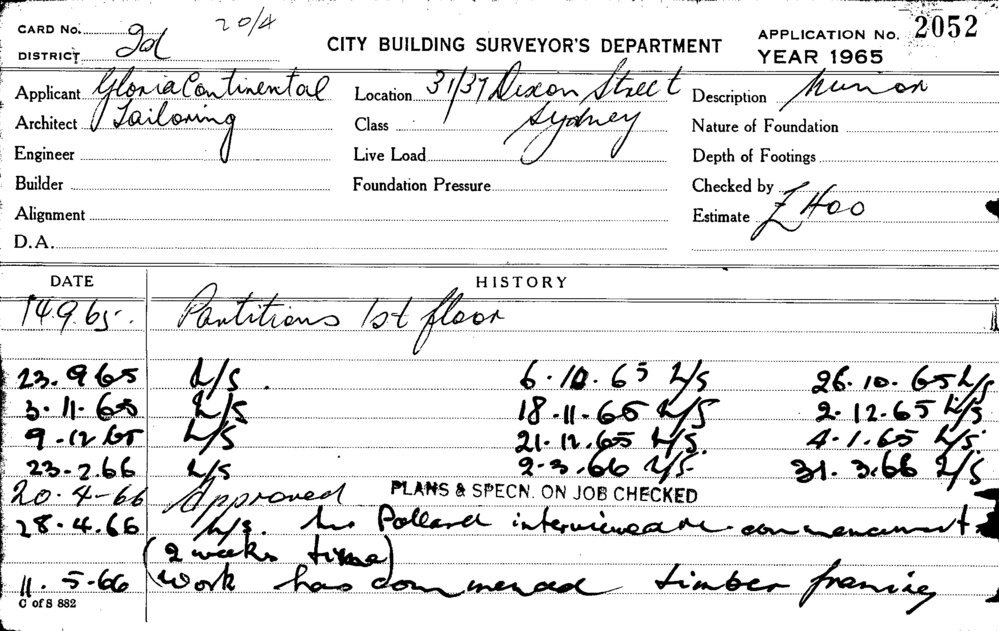 20/4
CARD No.
DISTRICT 2d
CITY BUILDING SURVEYOR'S DEPARTMENT
APPLICATION No. 2052
YEAR 1965
Applicant Gloria Continental
Architect Tailoring
Engineer
Builder
Alignment
D.A.
Location 31/37 Dixon Street
Class Sydney
Live Load
Foundation Pressure
Description Minor
Nature of Foundation
Depth of Footings
Checked by
Estimate Hoo
DATE HISTORY
14.9.65. Partitions 1st floor
23.9.65 L/S. 6.10.65 L/S 26.10.65 L/S
3.11.65 L/S 18.11.65 L/S 2.12.65 L/S
9.12.65 L/S 21.12.65 L/S. 4.1.65 L/S.
23.2.66 L/S 2.3.66 L/S. 31.3.66 L/S
20.4-66 Approved PLANS & SPECN. ON JOB CHECKED
28.4.66 L/S. Pollard interviewed re commencement
(2 weeks time)
11.5-66 Work has commenced timber framing
C of S 882